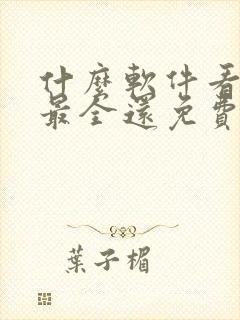 什麼軟件看
最全還免費
葉子楣